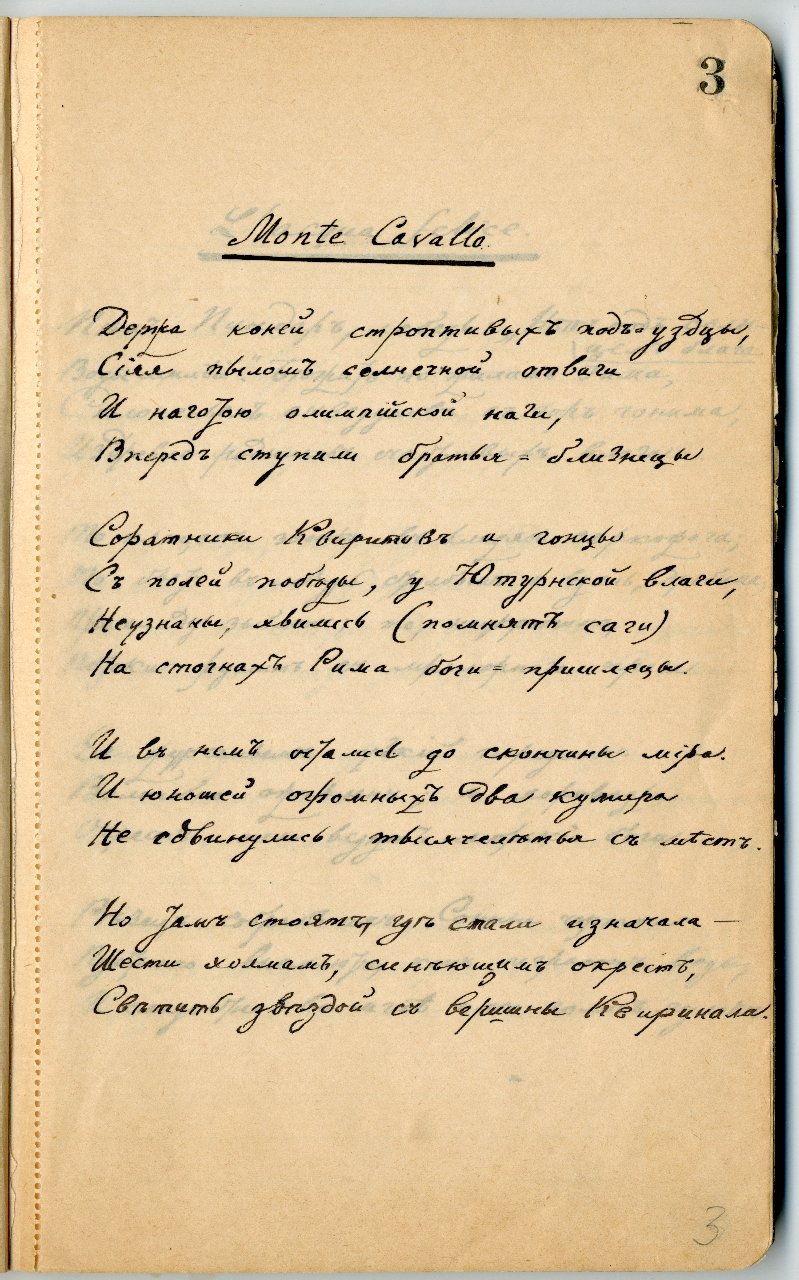 3
Monte Cavallo.
Держа коней строптивыхъ подъ=уздцы,
Сіяя пыломъ солнечной отваги
И наготою олимпійской наги,
Впередъ ступили братья=близнецы
Соратники Квиритовъ и гонцы
Съ полей побѣды, у Ютурнской влаги,
Неузнаны, явились (помнятъ саги)
На стогнахъ Рима боги=пришлецы.
И въ немъ остались до скончины міра.
И юношей огромныхъ два кумира
Не сдвинулись тысячелѣтья съ мѣстъ.
Но тамъ стоятъ, гдѣ стали изначала —
Шести холмамъ, синѣющимъ окрестъ,
Свѣтить звѣздой съ вершины Квиринала.
3